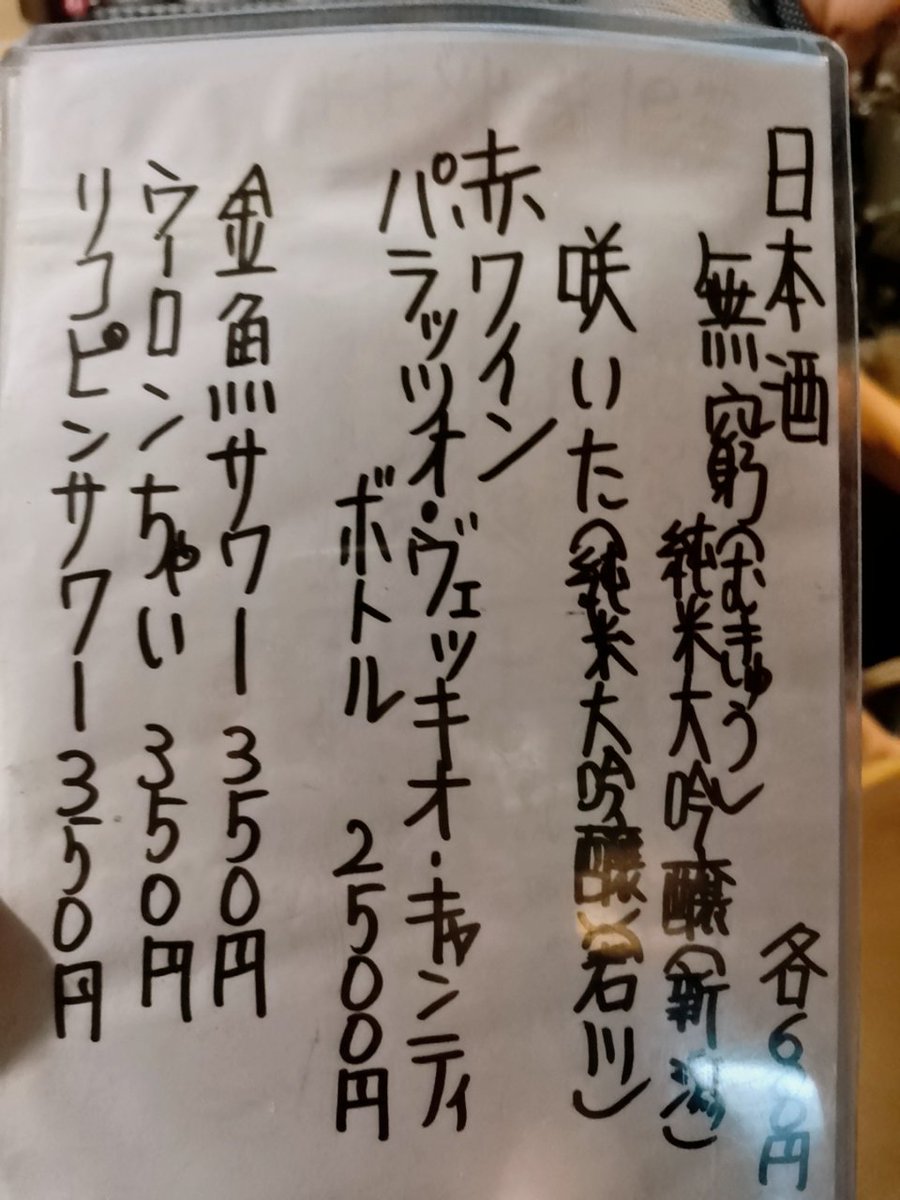 日本酒 各600円
無窮(むきゅう)
純米大吟醸(新潟)
咲いた(純米大吟醸)(石川)
赤ワイン
パラッツオ・ヴェッキオ・キャンティ
ボトル 2500円
金魚サワー 350円
ウーロンちゃい 350円
リコピンサワー 350円